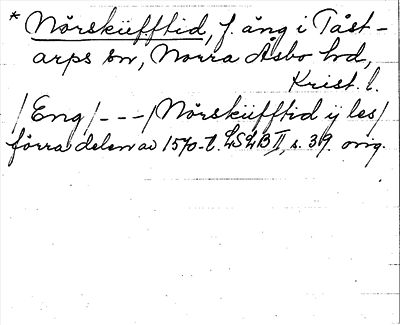 * Nårskiifftid, f. äng i Tåst-
arps sn, Norra Åsbo hd,
Krist. l.
/Eng/---/Nårskiifftid ij les/
förra delen av 1570-t. LSLB II, s. 39. orig.